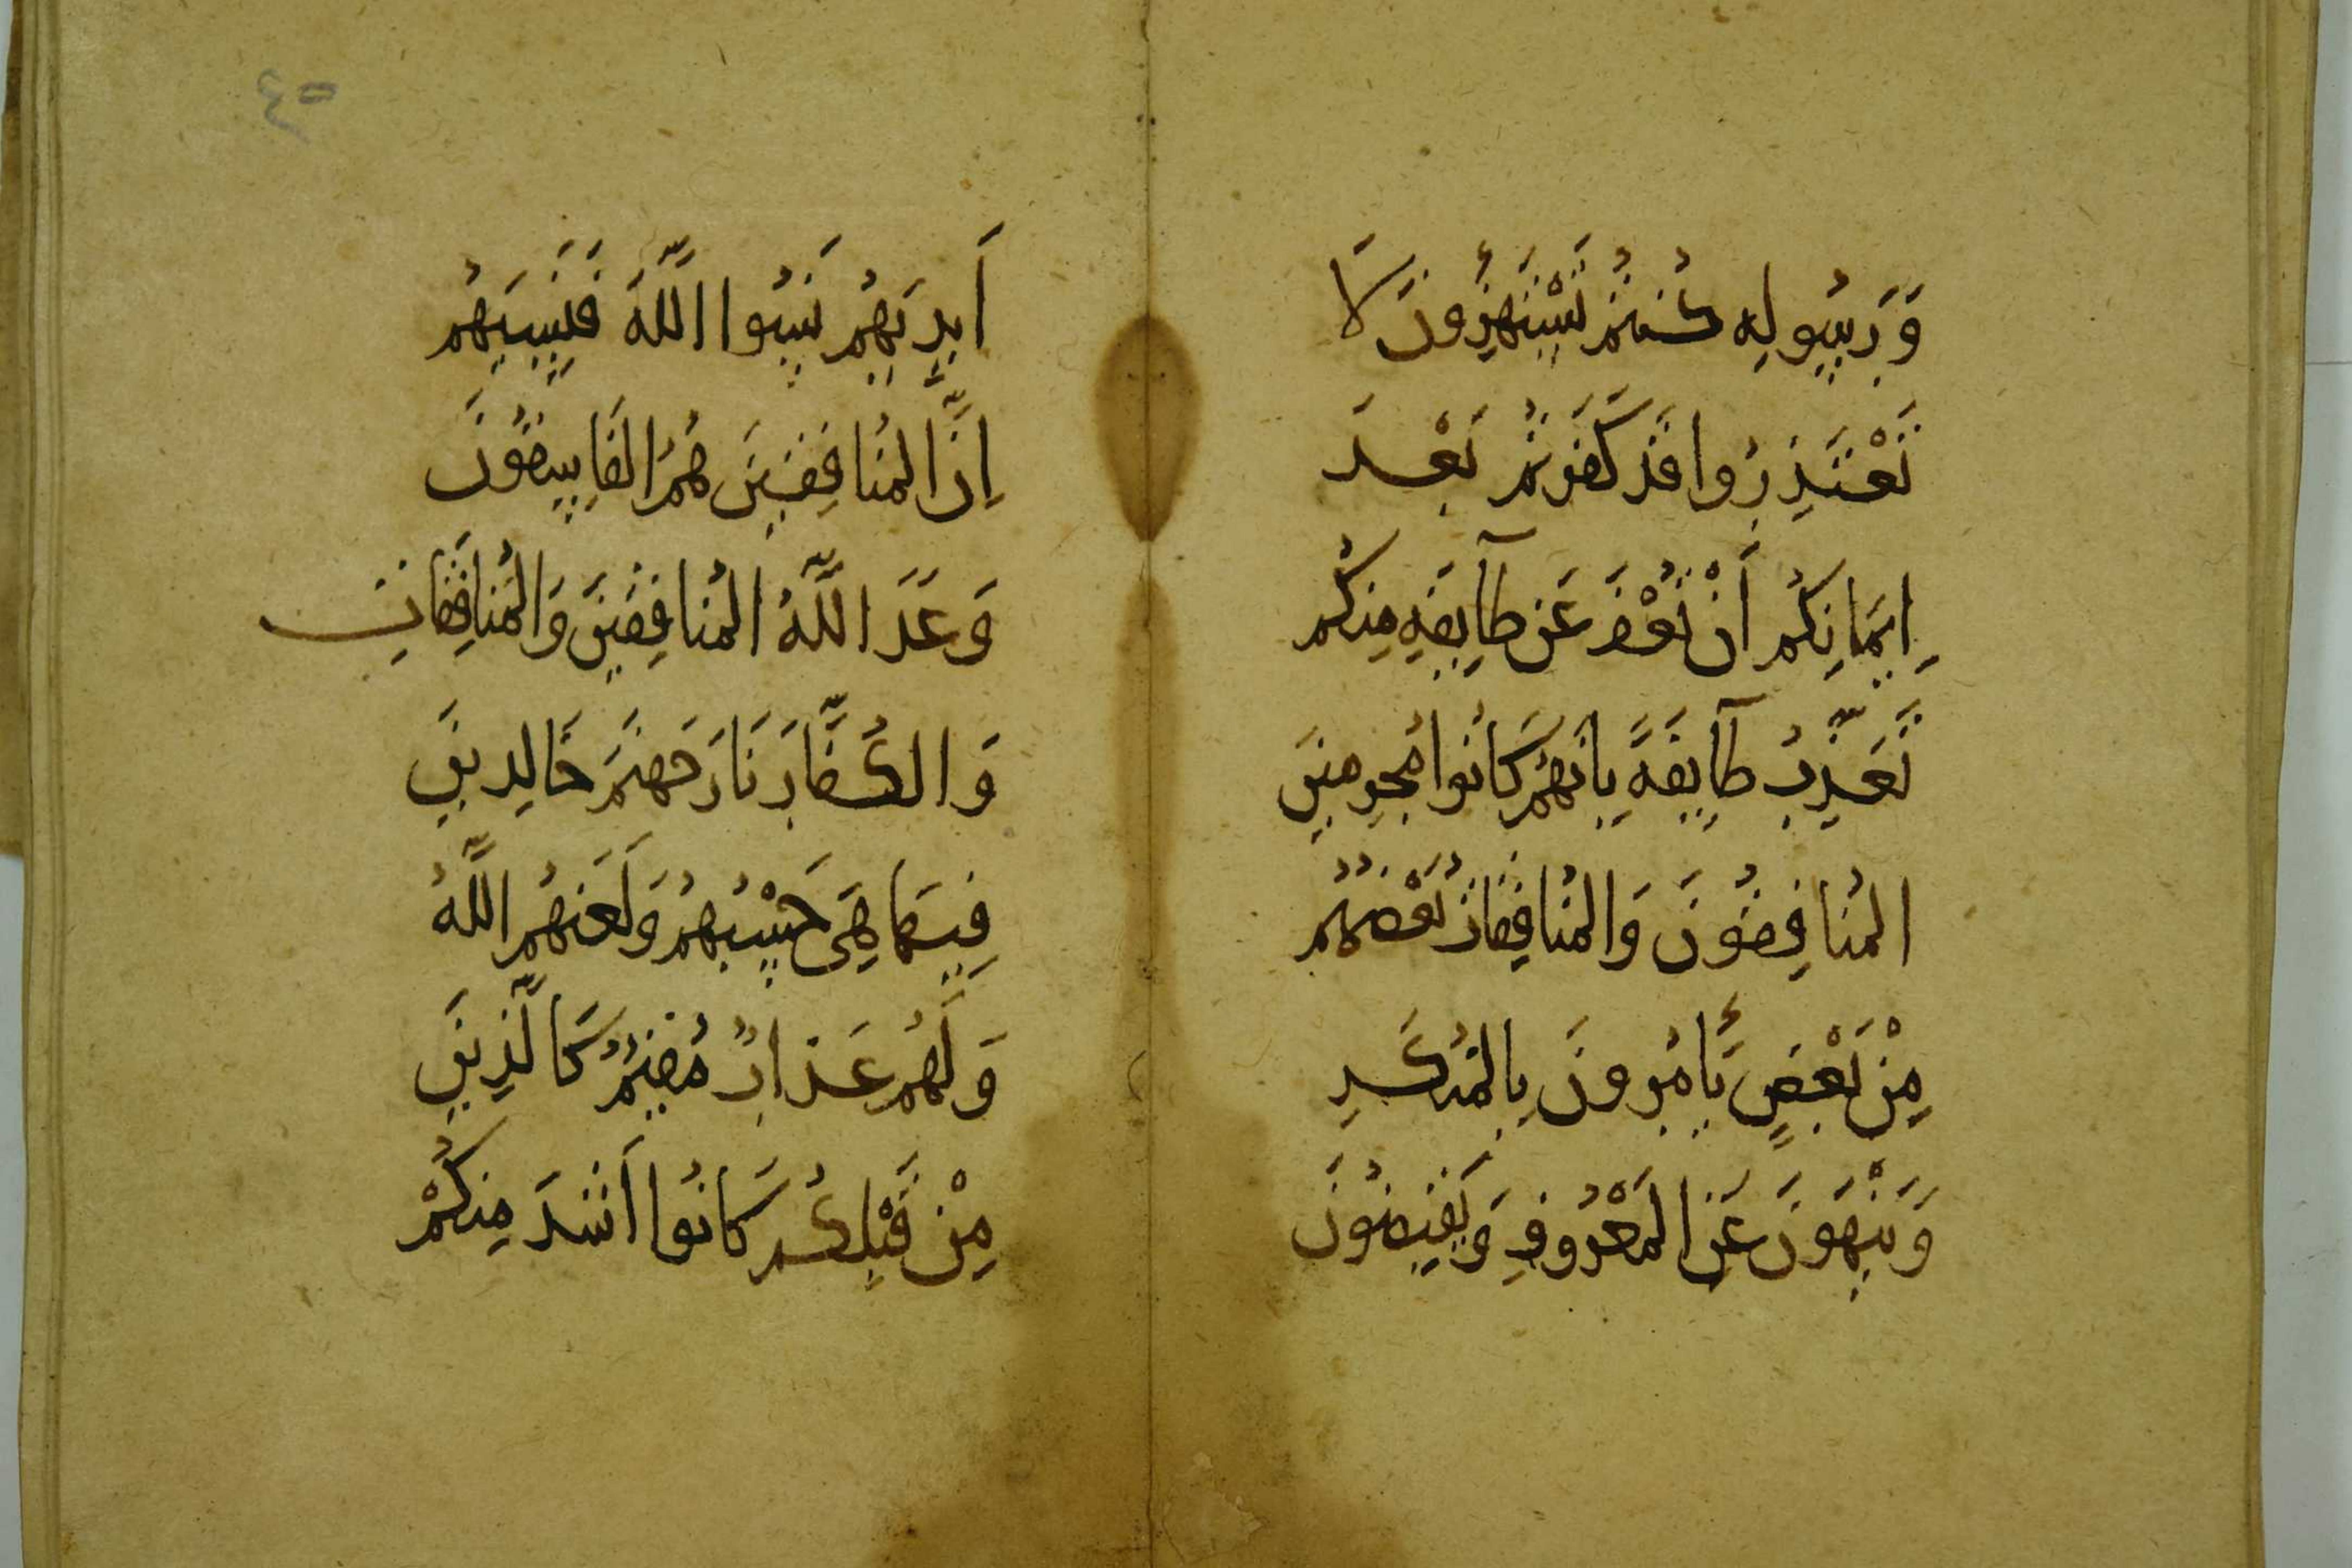 وَرَسُولِهِ كُنْتُمْ تَسْتَهْزِءُونَ لَا
تَعْتَذِرُوا قَدْ كَفَرْتُمْ بَعْدَ
اِيمَانِكُمْ اَنْ نَعْفُ عَنْ طَآيِفَةٍ مِنكُم
نُعَذِّبْ طَآيِفَةً بِاَنَّهُمْ كَانُوا مُجْرِمِينَ
المُنَافِقُونَ وَالمُنَافِقَاتُ بَعْضُهُمْ
مِنْ بَعْضٍ يَأْمُرُونَ بِالمُنكَرِ
وَيَنْهَوْنَ عَنِ المَعْرُوفِ وَيَقْبِضُونَ
٤٥
اَيْدِيَهُمْ نَسُوا اللَّهَ فَنَسِيَهُمْ
اِنَّ المُنَافِقِينَ هُمُ الفَاسِقُونَ
وَعَدَ اللَّهُ المُنَافِقِينَ وَالمُنَافِقَاتِ
وَالكُفَّارَ نَارَ جَهَنَّمَ خَالِدِينَ
فِيهَا هِيَ حَسْبُهُمْ وَلَعَنَهُمُ اللَّهُ
وَلَهُمْ عَذَابٌ مُقِيمٌ كَالَّذِينَ
مِنْ قَبْلِكُمْ كَانُوا اَشَدَّ مِنكُمْ